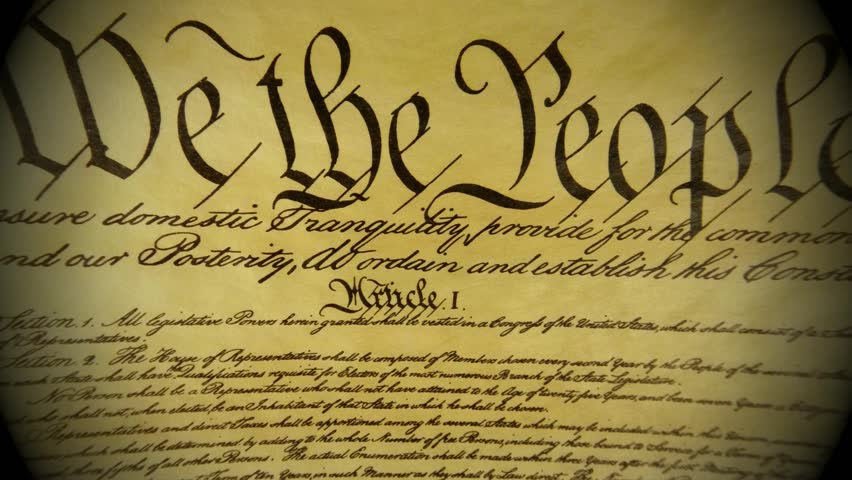 We the People
nsure domestic Tranquility, provide for the common
nd our Posterity, do ordain and establish this Const
Article. I.
Section. 1. All legislative Powers herein granted shall be vested in a Congress of the United States, which shall consist of a
of Representatives.
Section. 2. The House of Representatives shall be composed of Members chosen every second Year by the People of the several
in each State shall have the Qualifications requisite for Electors of the most numerous Branch of the State Legislature.
No Person shall be a Representative who shall not have attained to the Age of twenty five Years, and been seven Years a Citizen
who shall not, when elected, be an Inhabitant of that State in which he shall be chosen.
Representatives and direct Taxes shall be apportioned among the several States which may be included within this Union,
which shall be determined by adding to the whole Number of free Persons, including those bound to Service for a Term of
three fifths of all other Persons. The actual Enumeration shall be made within three Years after the first Meeting of
Term of ten Years, in such Manner as they shall by Law direct. The